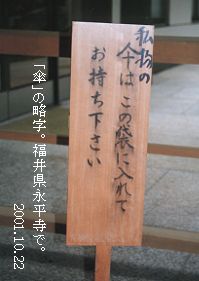 私物の
仐はこの袋に入れて
お持ち下さい
「傘」の略字。福井県永平寺で。
2001.10.22